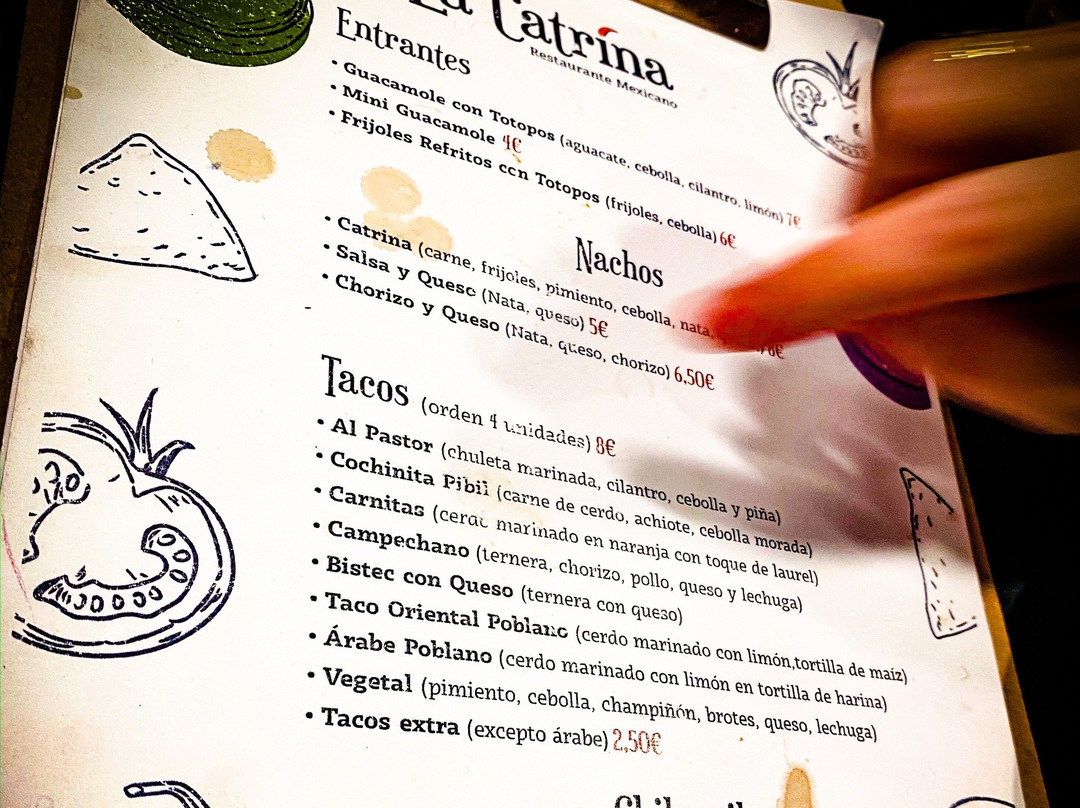 La Catrina
Restaurante Mexicano
Entrantes
• Guacamole con Totopos (aguacate, cebolla, cilantro, limón) 7€
• Mini Guacamole 4€
• Frijoles Refritos con Totopos (frijoles, cebolla) 6€
Nachos
• Catrina (carne, frijoles, pimiento, cebolla, nata,
• Salsa y Queso (Nata, queso) 5€
• Chorizo y Queso (Nata, queso, chorizo) 6,50€
Tacos (orden 4 unidades) 8€
• Al Pastor (chuleta marinada, cilantro, cebolla y piña)
• Cochinita Pibil (carne de cerdo, achiote, cebolla morada)
• Carnitas (cerdo marinado en naranja con toque de laurel)
• Campechano (ternera, chorizo, pollo, queso y lechuga)
• Bistec con Queso (ternera con queso)
• Taco Oriental Poblano (cerdo marinado con limón,tortilla de maiz)
• Árabe Poblano (cerdo marinado con limón en tortilla de harina)
• Vegetal (pimiento, cebolla, champiñón, brotes, queso, lechuga)
• Tacos extra (excepto árabe) 2,50€